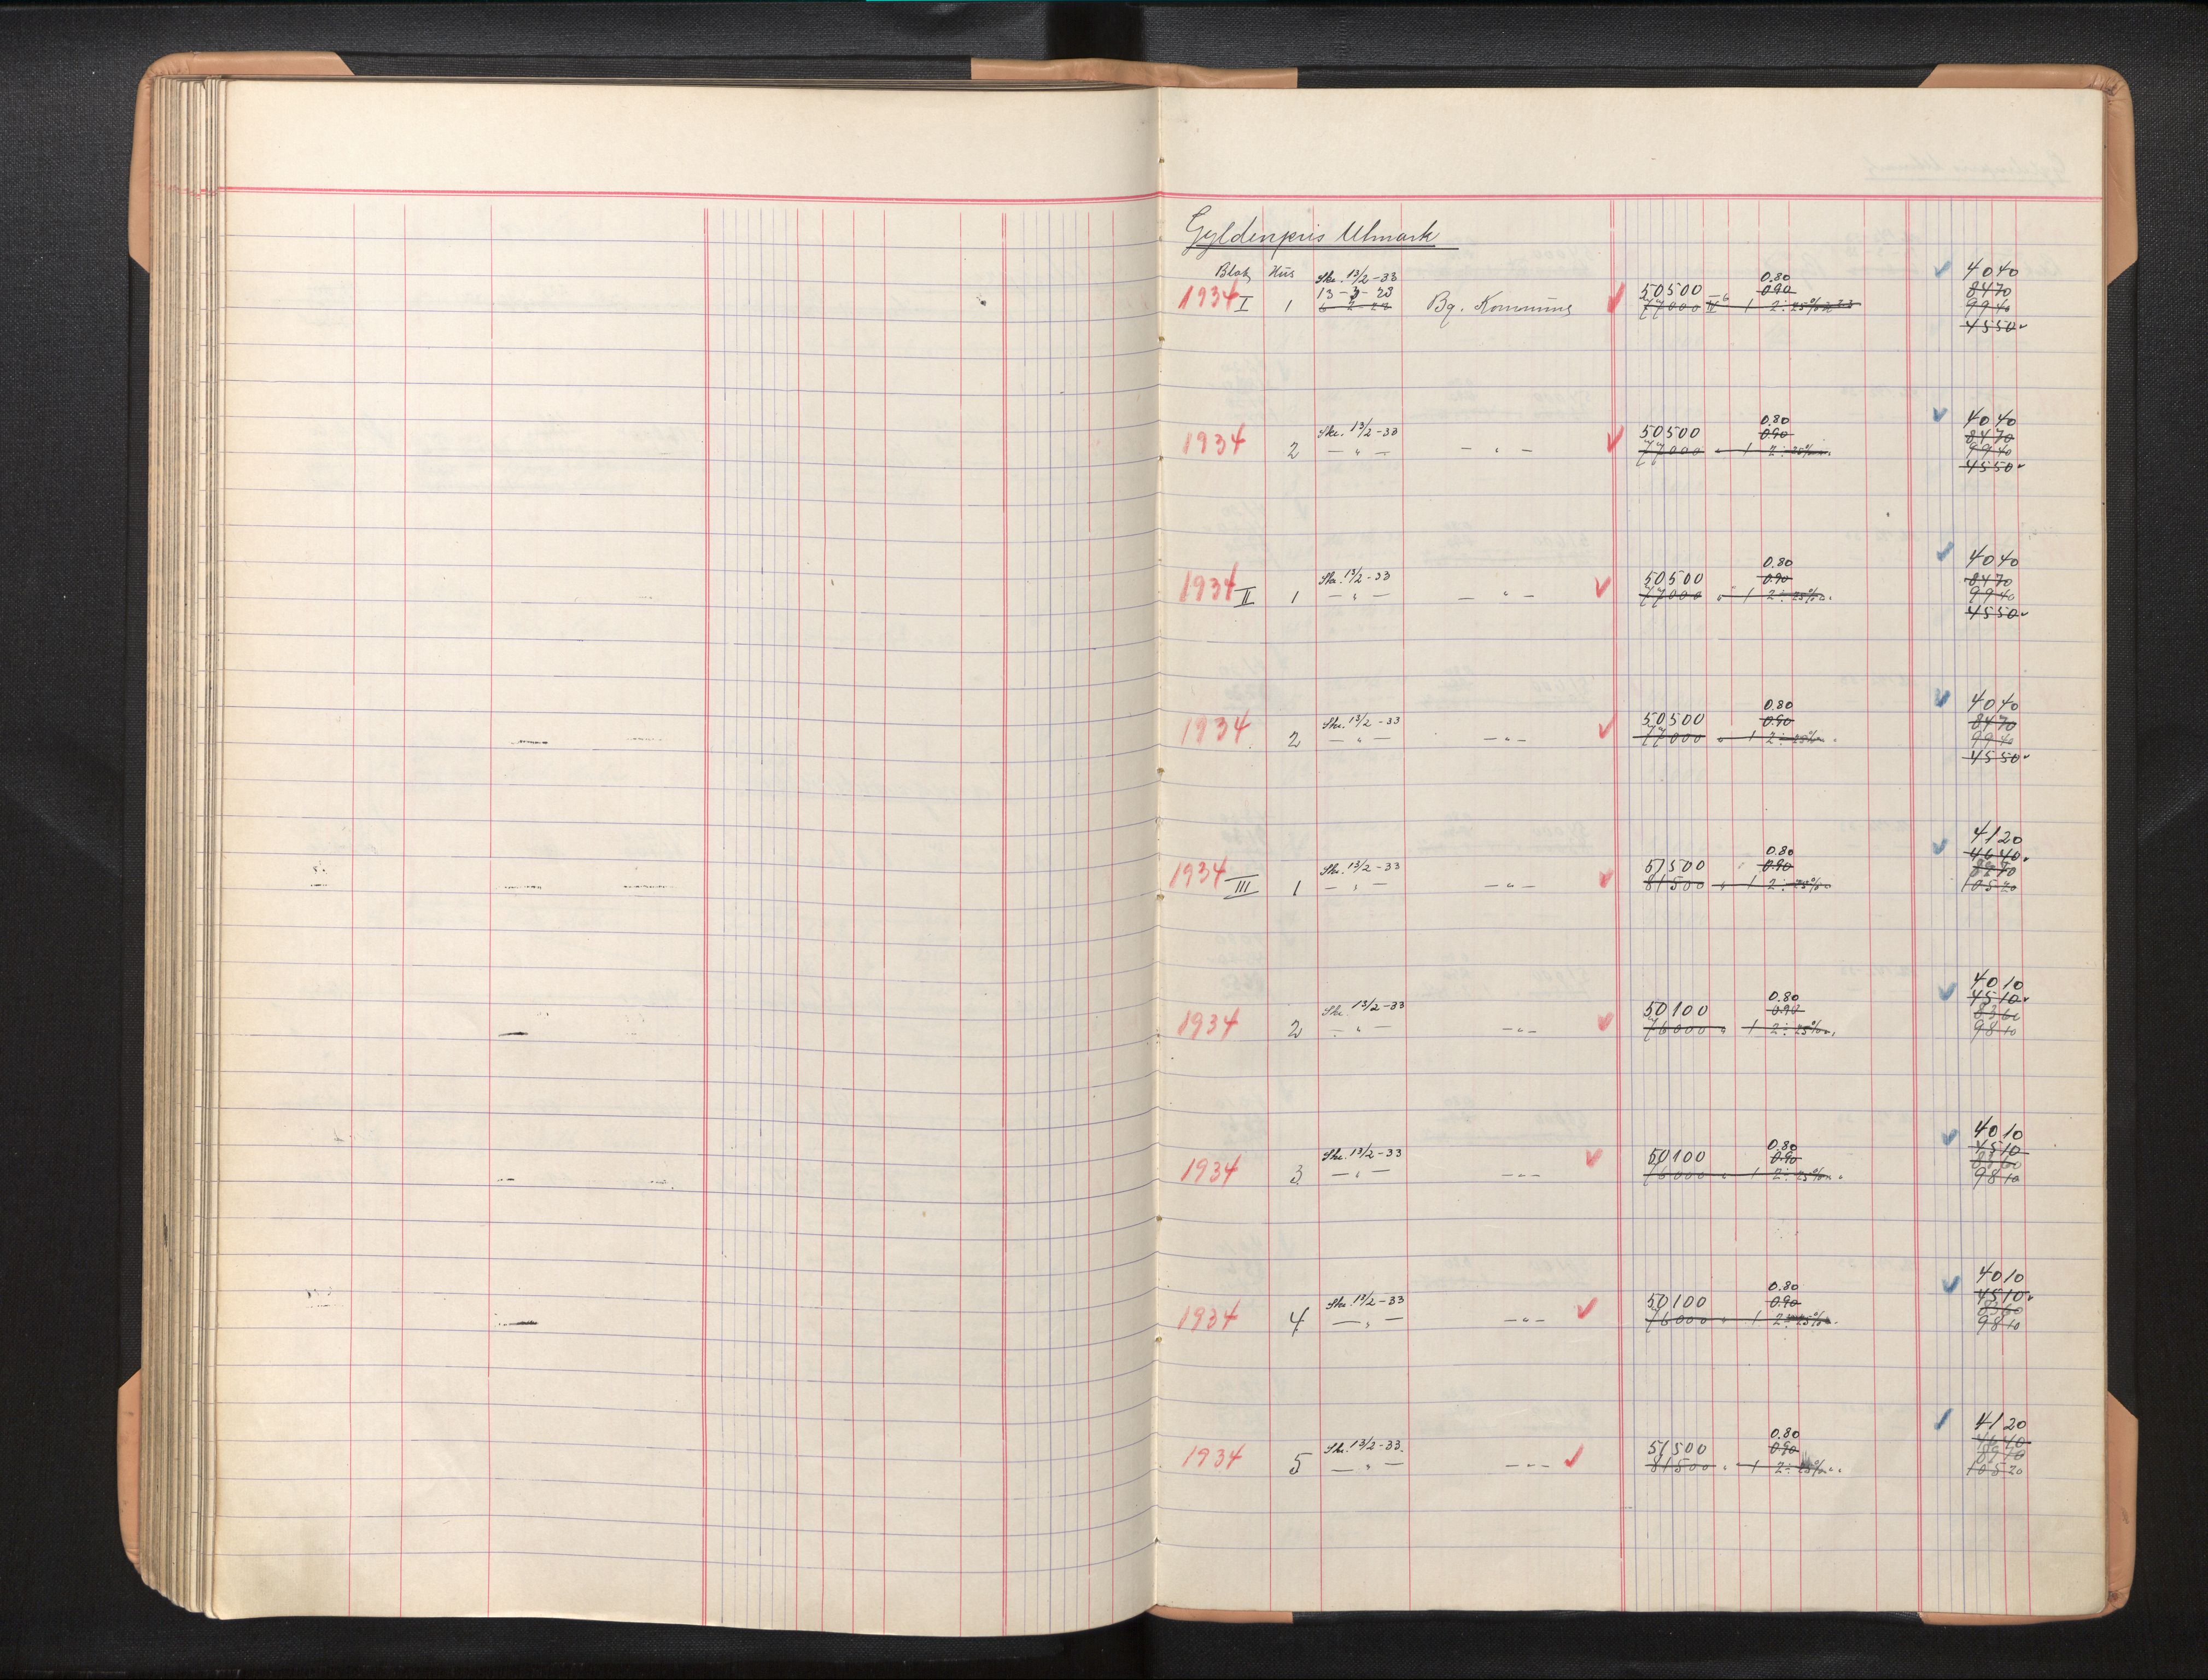 Gyldenpris Utmark
Blok Hus Skr. 13/2-33 0.80 4040
1934 I 1 13-3-23 Bg. Kommune 50500 0.90 8470
6-2-22 77000 1 2 ÷ 25% 9940
4550
0.80 4040
1934 Skr. 13/2-33 50500 0.90 8470
2 — " — — " — 77000 " 1 2 ÷ 25% 9940
4550
0.80 4040
1934 II Skr. 13/2-33 50500 0.90 8470
1 — " — — " — 77000 " 1 2 ÷ 25% 9940
4550
0.80 4040
1934 Skr. 13/2-33 50500 0.90 8470
2 — " — — " — 77000 " 1 2 ÷ 25% 9940
4550
4120
0.80 4640
1934 III Skr. 13/2-33 51500 0.90 8970
1 — " — — " — 81500 " 1 2 ÷ 25% 10520
4010
0.80 4510
1934 Skr. 13/2-33 50100 0.90 8360
2 — " — — " — 76000 " 1 2 ÷ 25% 9810
4010
0.80 4510
1934 Skr. 13/2-33 50100 0.90 8360
3 — " — — " — 76000 " 1 2 ÷ 25% 9810
4010
0.80 4510
1934 Skr. 13/2-33 50100 0.90 8360
4 — " — — " — 76000 " 1 2 ÷ 25% 9810
4120
0.80 4640
1934 Skr. 13/2-33 51500 0.90 8970
5 — " — — " — 81500 " 1 2 ÷ 25% 10520